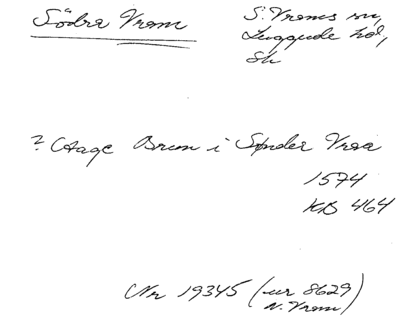 Södra Vram
S. Vrams sn,
Luggude hd,
Sk
? Aage Brun i Sønder Vraa
1574
KB 464
Nr 19345 (ur 8629
N. Vram)